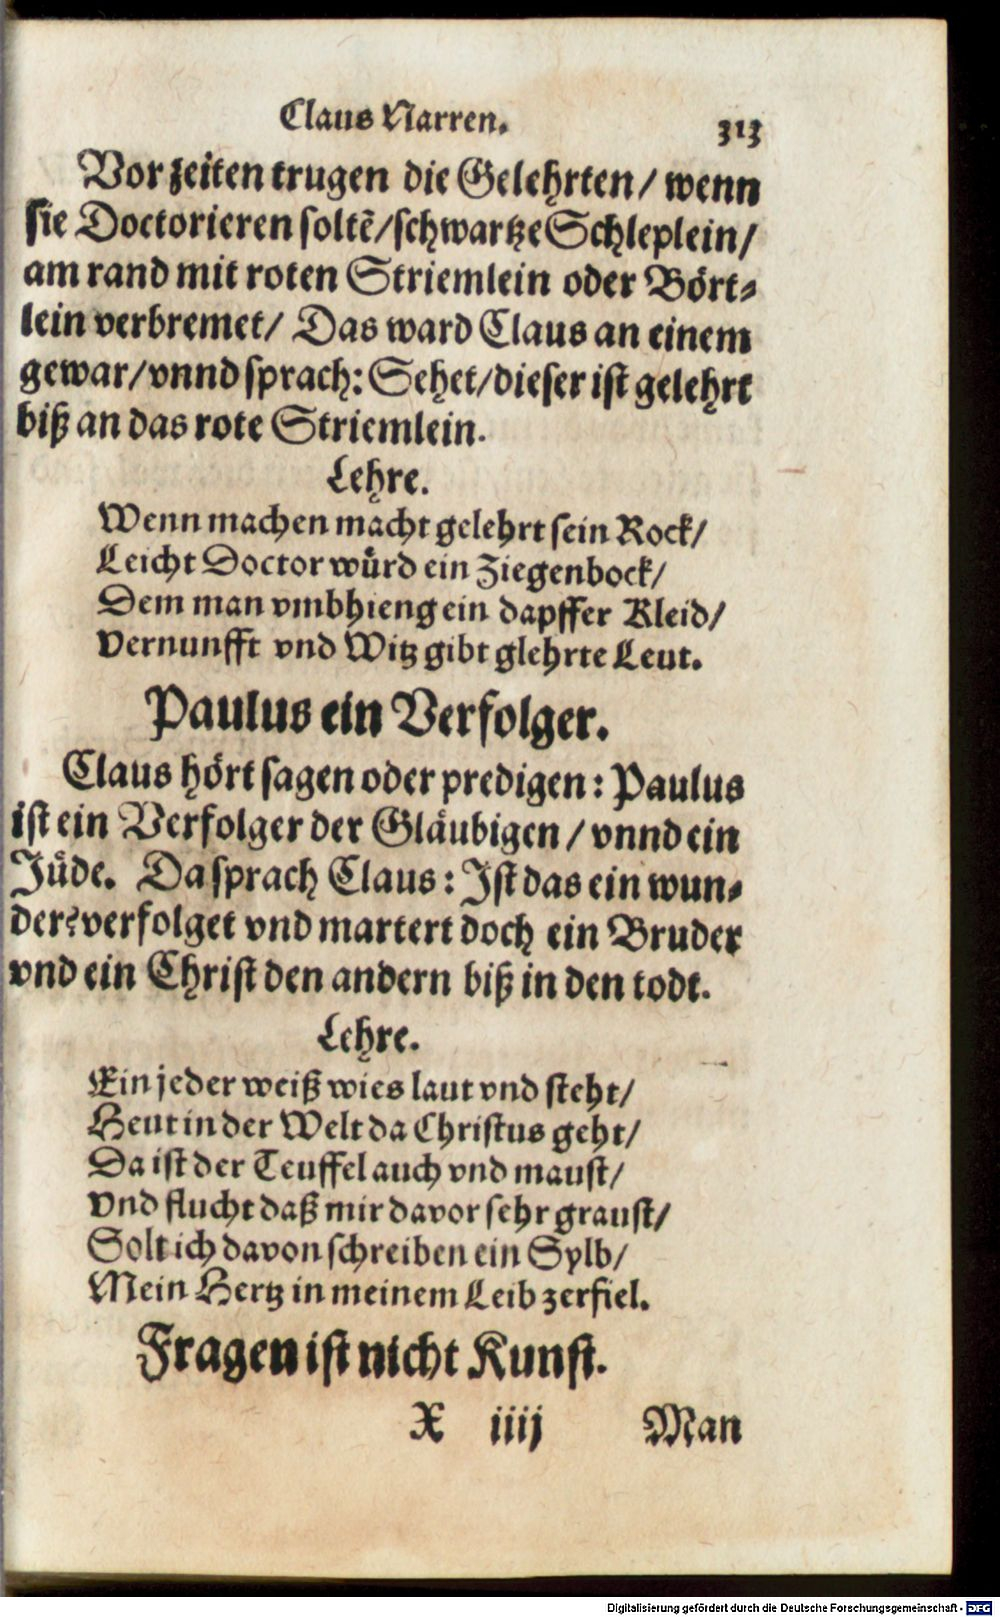 Claus Narren. 313
Vor zeiten trugen die Gelehrten/ wenn
sie Doctorieren soltẽ/schwartze Schleplein/
am rand mit roten Striemlein oder Bört⸗
lein verbremet/ Das ward Claus an einem
gewar/vnnd sprach: Sehet/dieser ist gelehrt
biß an das rote Striemlein.
Lehre.
Wenn machen macht gelehrt sein Rock/
Leicht Doctor wuͤrd ein Ziegenbock/
Dem man vmbhieng ein dapffer Kleid/
Vernunfft vnd Witz gibt glehrte Leut.
Paulus ein Verfolger.
Claus hört sagen oder predigen: Paulus
ist ein Verfolger der Gläubigen / vnnd ein
Juͤde. Da sprach Claus: Ist das ein wun⸗
der? verfolget vnd martert doch ein Bruder
vnd ein Christ den andern biß in den todt.
Lehre.
Ein jeder weiß wies laut vnd steht/
Heut in der Welt da Christus geht/
Da ist der Teuffel auch vnd maust/
Vnd flucht daß mir davor sehr graust/
Solt ich davon schreiben ein Sylb/
Mein Hertz in meinem Leib zerfiel.
Fragen ist nicht Kunst.
X iiij Man
Digitalisierung gefördert durch die Deutsche Forschungsgemeinschaft - DFG